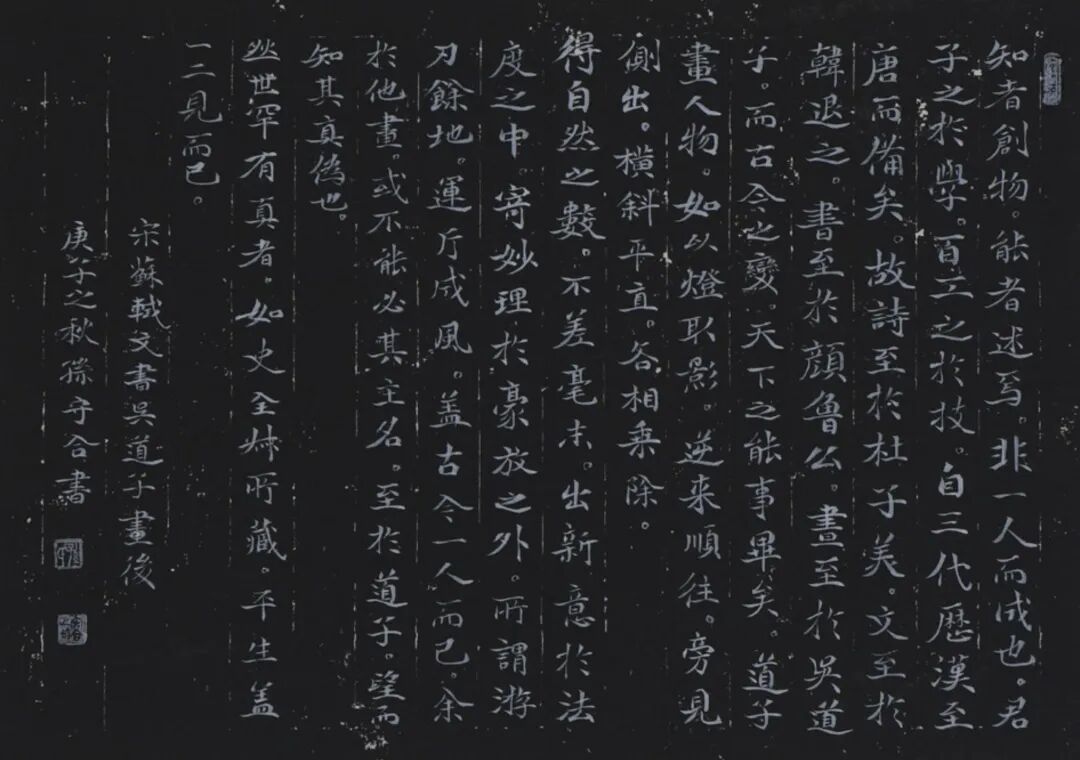 知者創物。能者述焉。非一人而成也。君
子之於學。百工之於技。自三代歷漢至
唐而備矣。故詩至於杜子美。文至於
韓退之。書至於顏魯公。畫至於吳道
子。而古今之變。天下之能事畢矣。道子
畫人物。如以燈取影。逆來順往。旁見
側出。橫斜平直。各相乘除。
得自然之數。不差毫末。出新意於法
度之中。寄妙理於豪放之外。所謂游
刃餘地。運斤成風。盖古今一人而已。余
於他畫。或不能必其主名。至於道子。望而
知其真偽也。
然世罕有真者。如史全叔所藏。平生盖
一二見而已。
宋蘇軾文書吳道子畫後
庚子之秋孫守合書